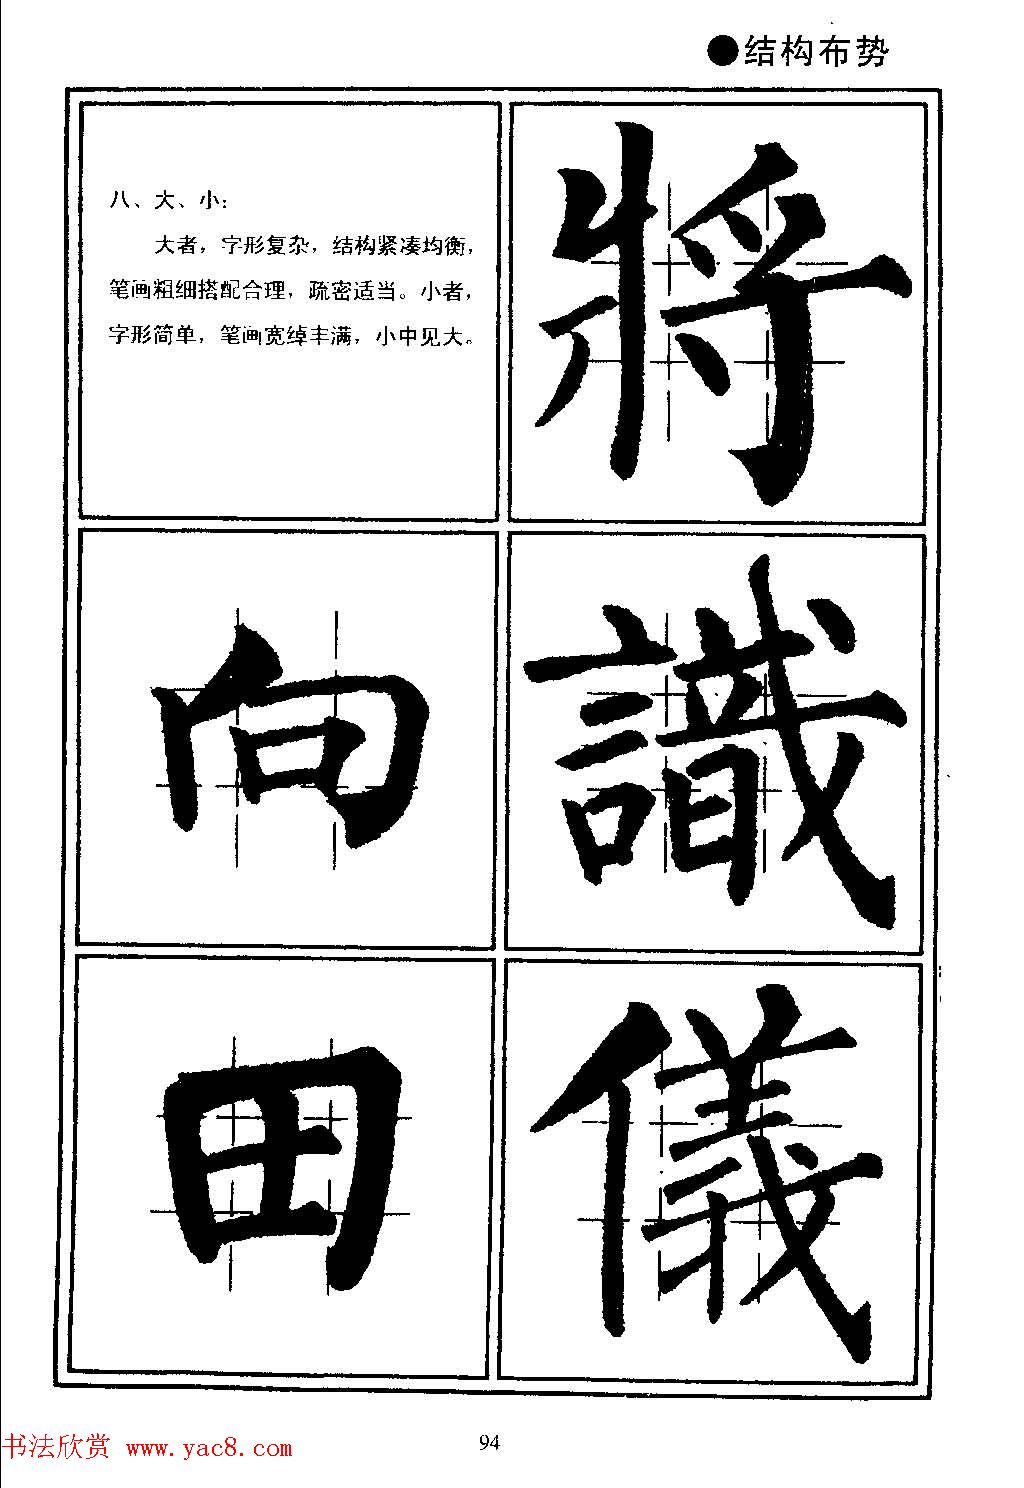 ●结构布势
八、大、小：
大者，字形复杂，结构紧凑均衡，
笔画粗细搭配合理，疏密适当。小者，
字形简单，笔画宽绰丰满，小中见大。
將
識
儀
向
田
书法欣赏 www.yac8.com
94